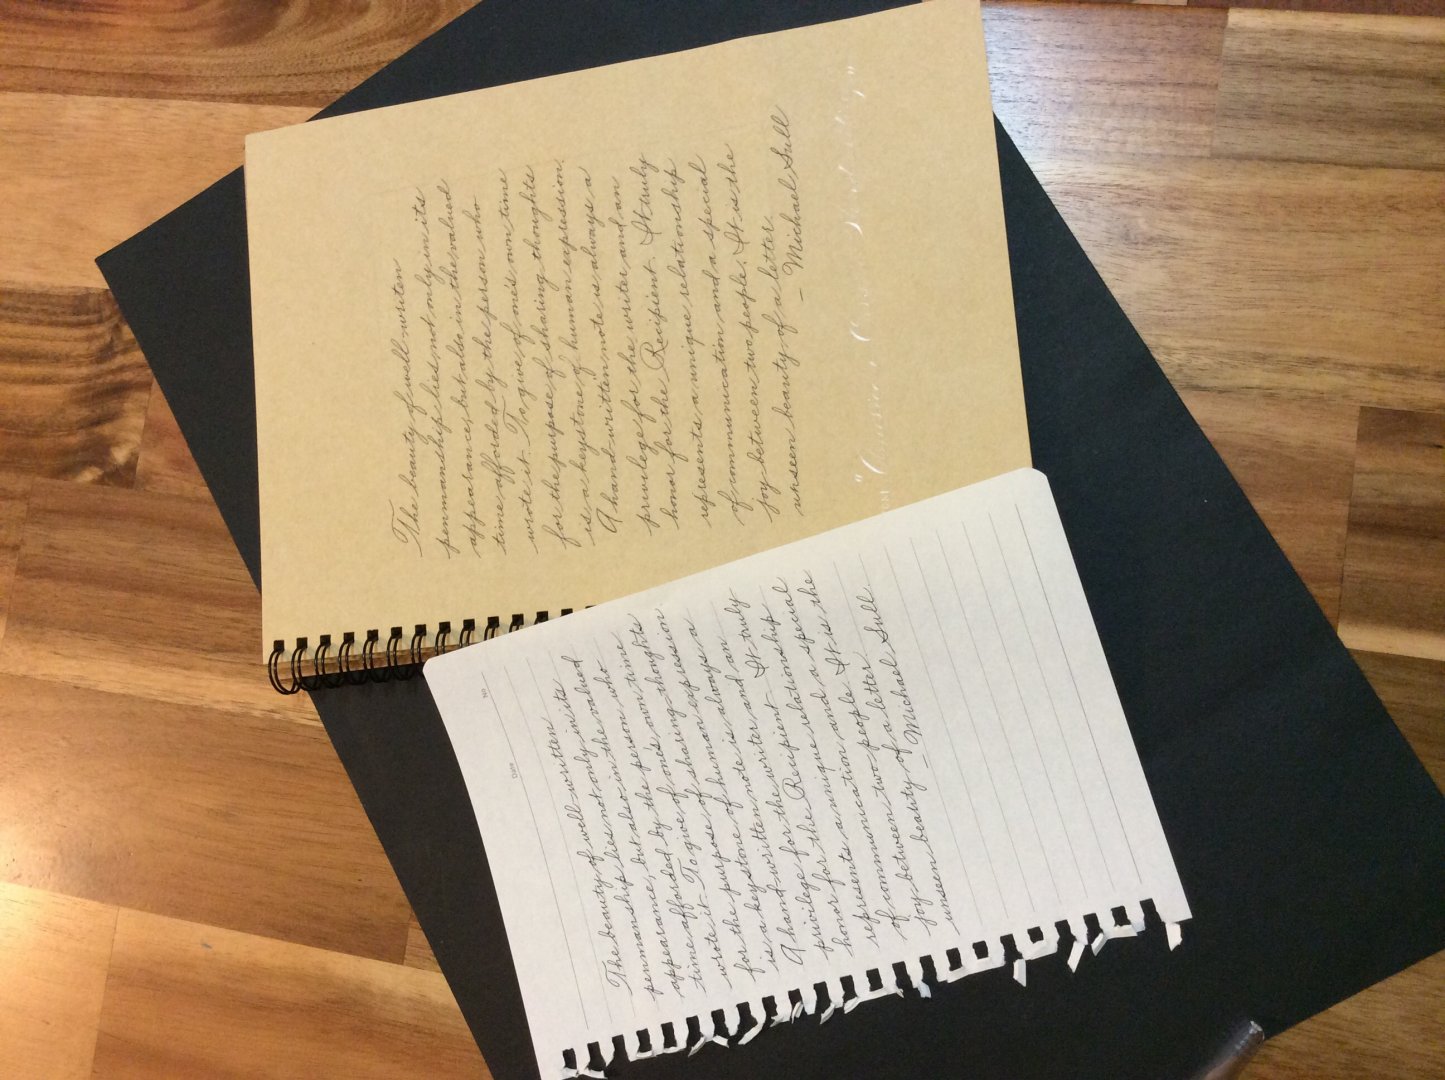 The beauty of well-writen
penmanship lies not only in its
appearance, but also in the valued
time afforded by the person who
wrote it. To give of one's own time
for the purpose of sharing thoughts
is a keystone of human expression.
A hand-written note is always a
privilege for the writer and an
honor for the Recipient. It truly
represents a unique relationship
of communication and a special
joy between two people. It is the
unseen beauty of a letter.
— Michael Sull
No.
Date
The beauty of well-written
penmanship lies not only in its
appearance, but also in the valued
time afforded by the person who
wrote it. To give of one's own time
for the purpose of sharing thoughts
is a keystone of human expression
A hand-written note is always a
privilege for the writer and an
honor for the Recipient. It truly
represents a unique relationship
of communication and a special
joy between two people. It is the
unseen beauty of a letter
— Michael Sull.